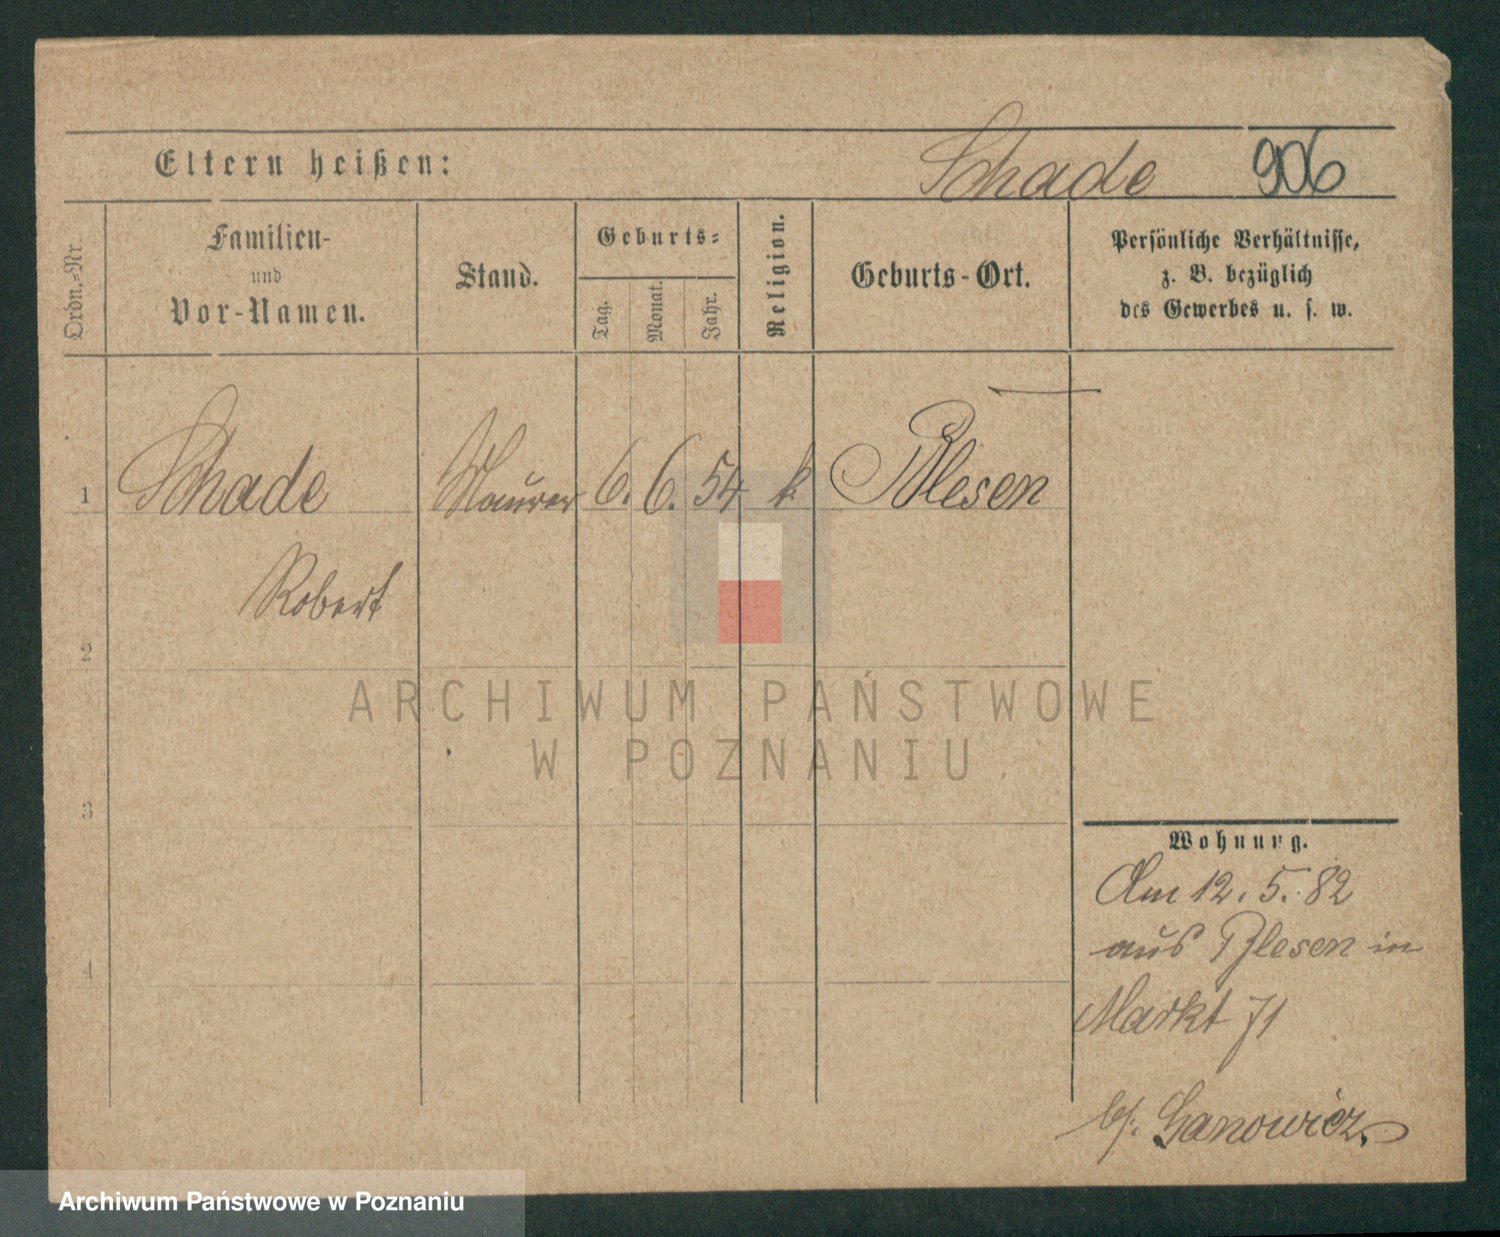 Eltern heißen: Schade 906
Ordn.-Nr.
Familien-
und
Vor-Namen.
Stand.
Geburts-
Tag.
Monat.
Jahr.
Religion.
Geburts-Ort.
Persönliche Verhältnisse,
z. B. bezüglich
des Gewerbes u. s. w.
1 Schade Maurer 6. 6. 54 k. Blesen
Robert
2
3
4
Wohnung.
Am 12. 5. 82
aus Blesen in
Markt 71
bj. Ganowicz.
ARCHIWUM PAŃSTWOWE
W POZNANIU
Archiwum Państwowe w Poznaniu